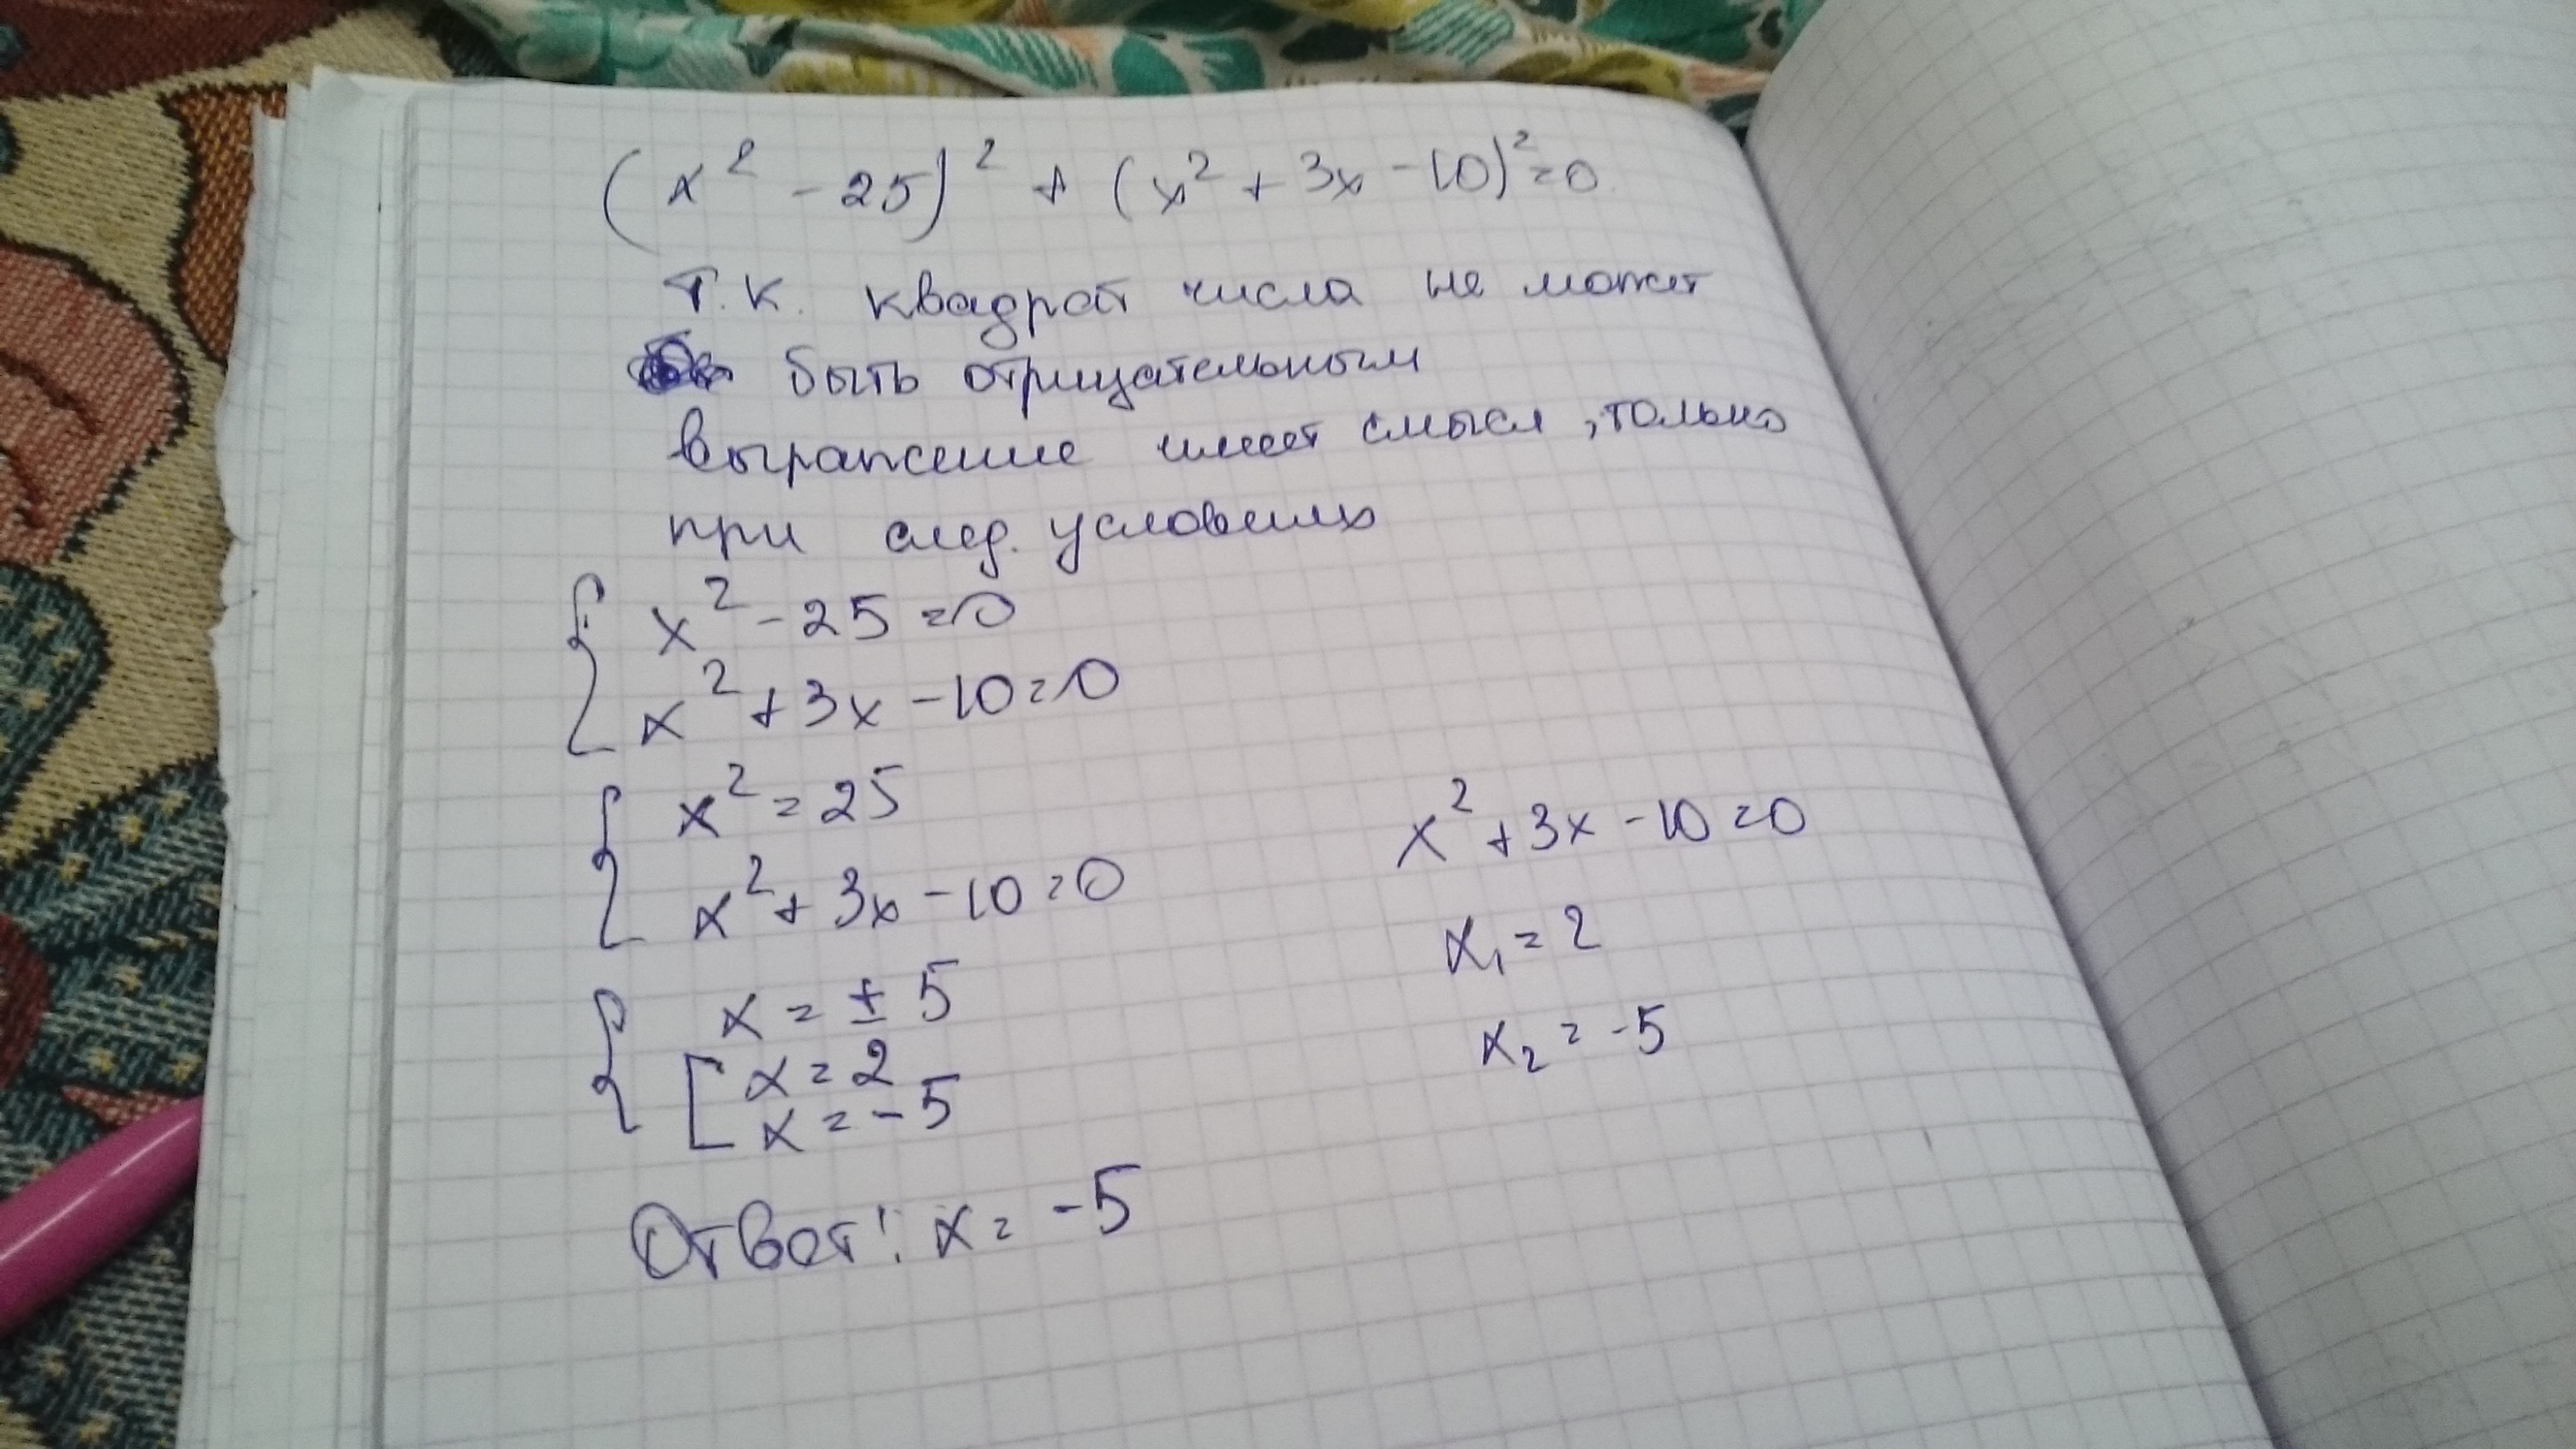 (x² - 25)² + (x² + 3x - 10)² = 0
Т.К. квадрат числа не может
быть отрицательным
выражение имеет смысл, только
при след. условиях
{ x² - 25 = 0
x² + 3x - 10 = 0
{ x² = 25
x² + 3x - 10 = 0
{ x = ± 5
[ x = 2
x = -5
x² + 3x - 10 = 0
x₁ = 2
x₂ = -5
Ответ: x = -5